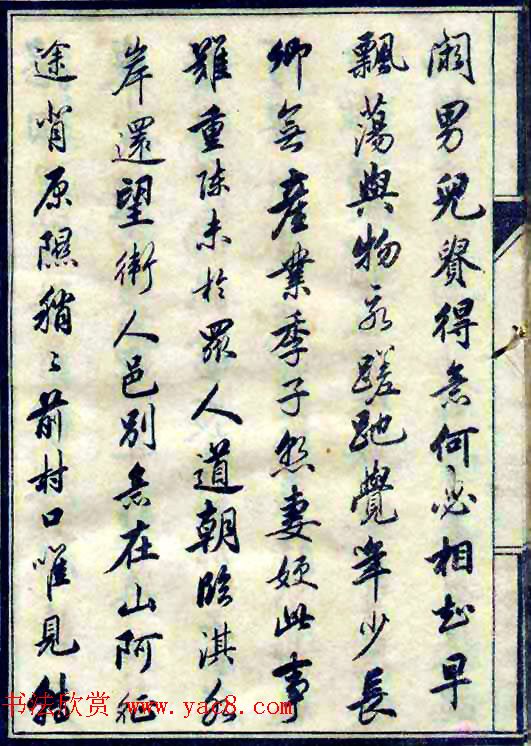 闊男兒賞得意何必相知早
飄蕩與物永蹉跎覺年少長
卿無產業季子妻嫂此事
難重陳未於眾人道朝臨淇水
岸還望衛人邑別意在山阿征
途背原隰稍〻前村口唯見
书法欣赏 www.yac8.com